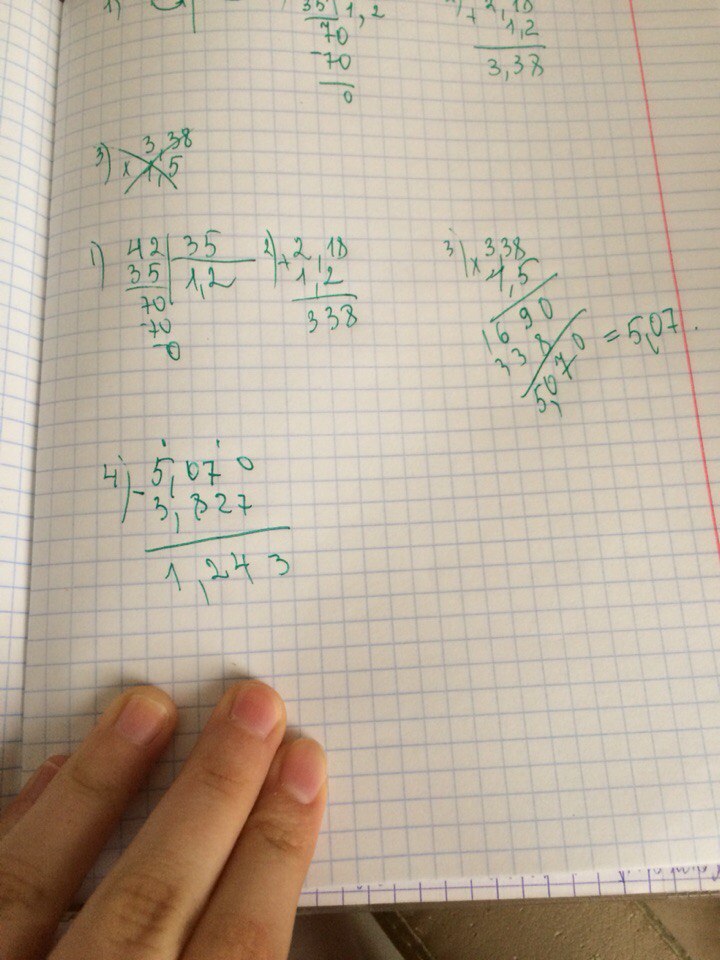 1)
35 1,2
70
-70
0
+ 2,18
1,2
3,38
3) × 3,38
1,5
1) 42 35
35 1,2
70
-70
-0
2) + 2,18
1,2
338
3) × 3,38
1,5
1690
338
5,070 = 5,07.
4) - 5,070
3,827
1,243